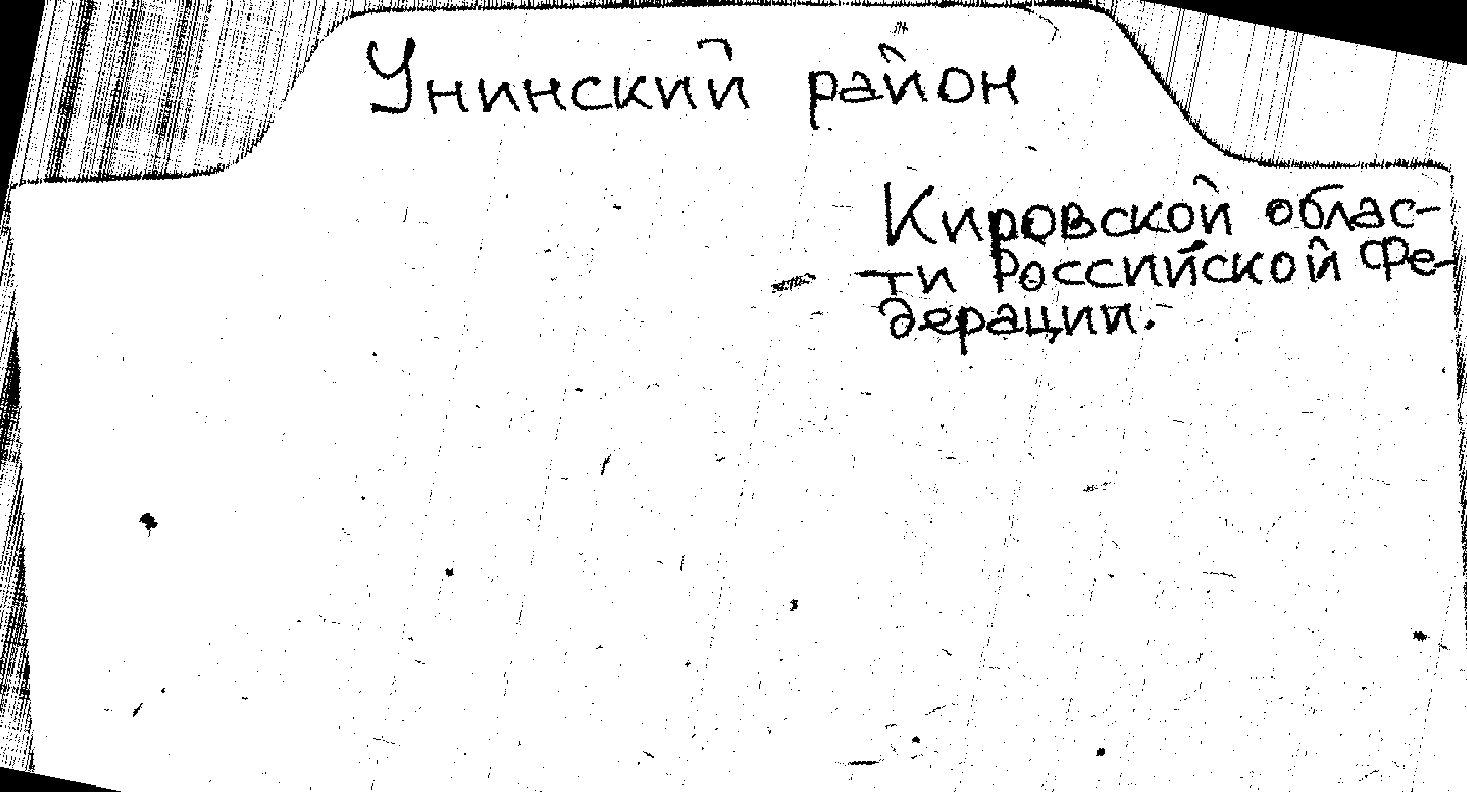 Унинский район
Кировской облас-
ти Российской Фе-
дерации.